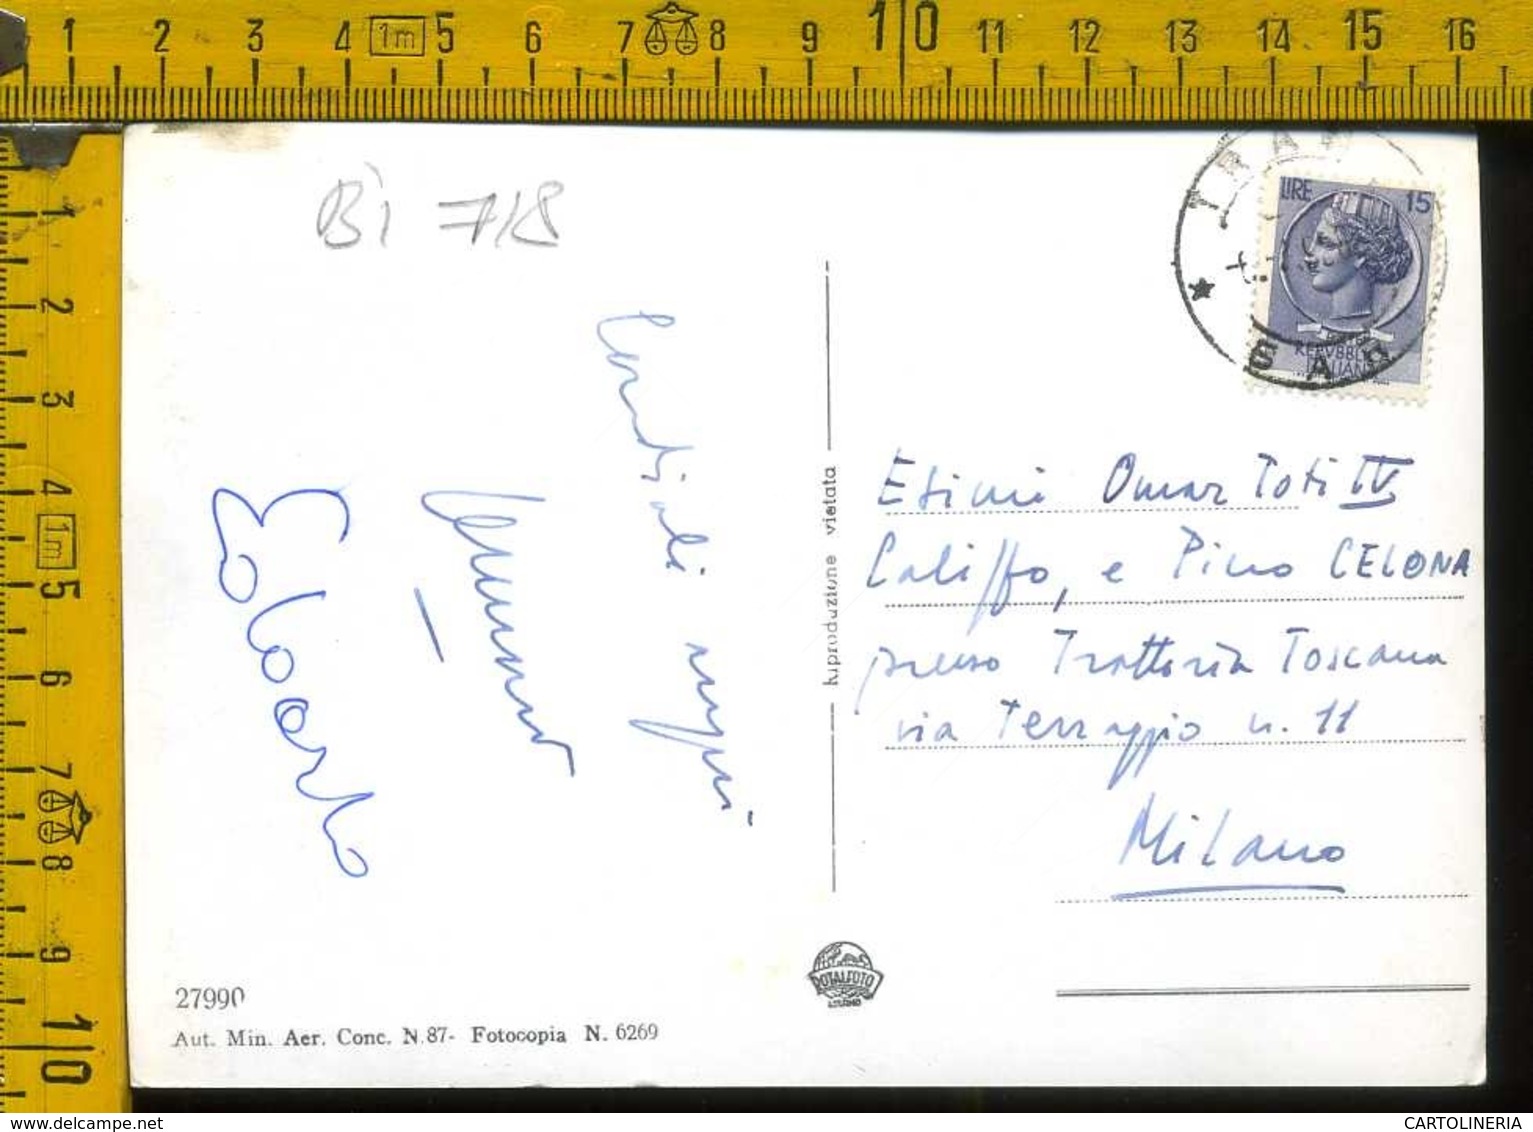 1 2 3 4 1m 5 6 7 8 9 10 11 12 13 14 15 16
1 2 3 4 1m 5 6 7 8 9 10
Bi 718
LIRE 15
REPVBBLICA
ITALIANA
SAR
Cordiali
Edoardo
Riproduzione vietata
Omar Toti IV
Califfo, e Pino CELONA
presso Trattoria Toscana
via Terraggio n. 11
Milano
ROTALFOTO
MILANO
27990
Aut. Min. Aer. Conc. N. 87- Fotocopia N. 6269
www.delcampe.net
CARTOLINERIA